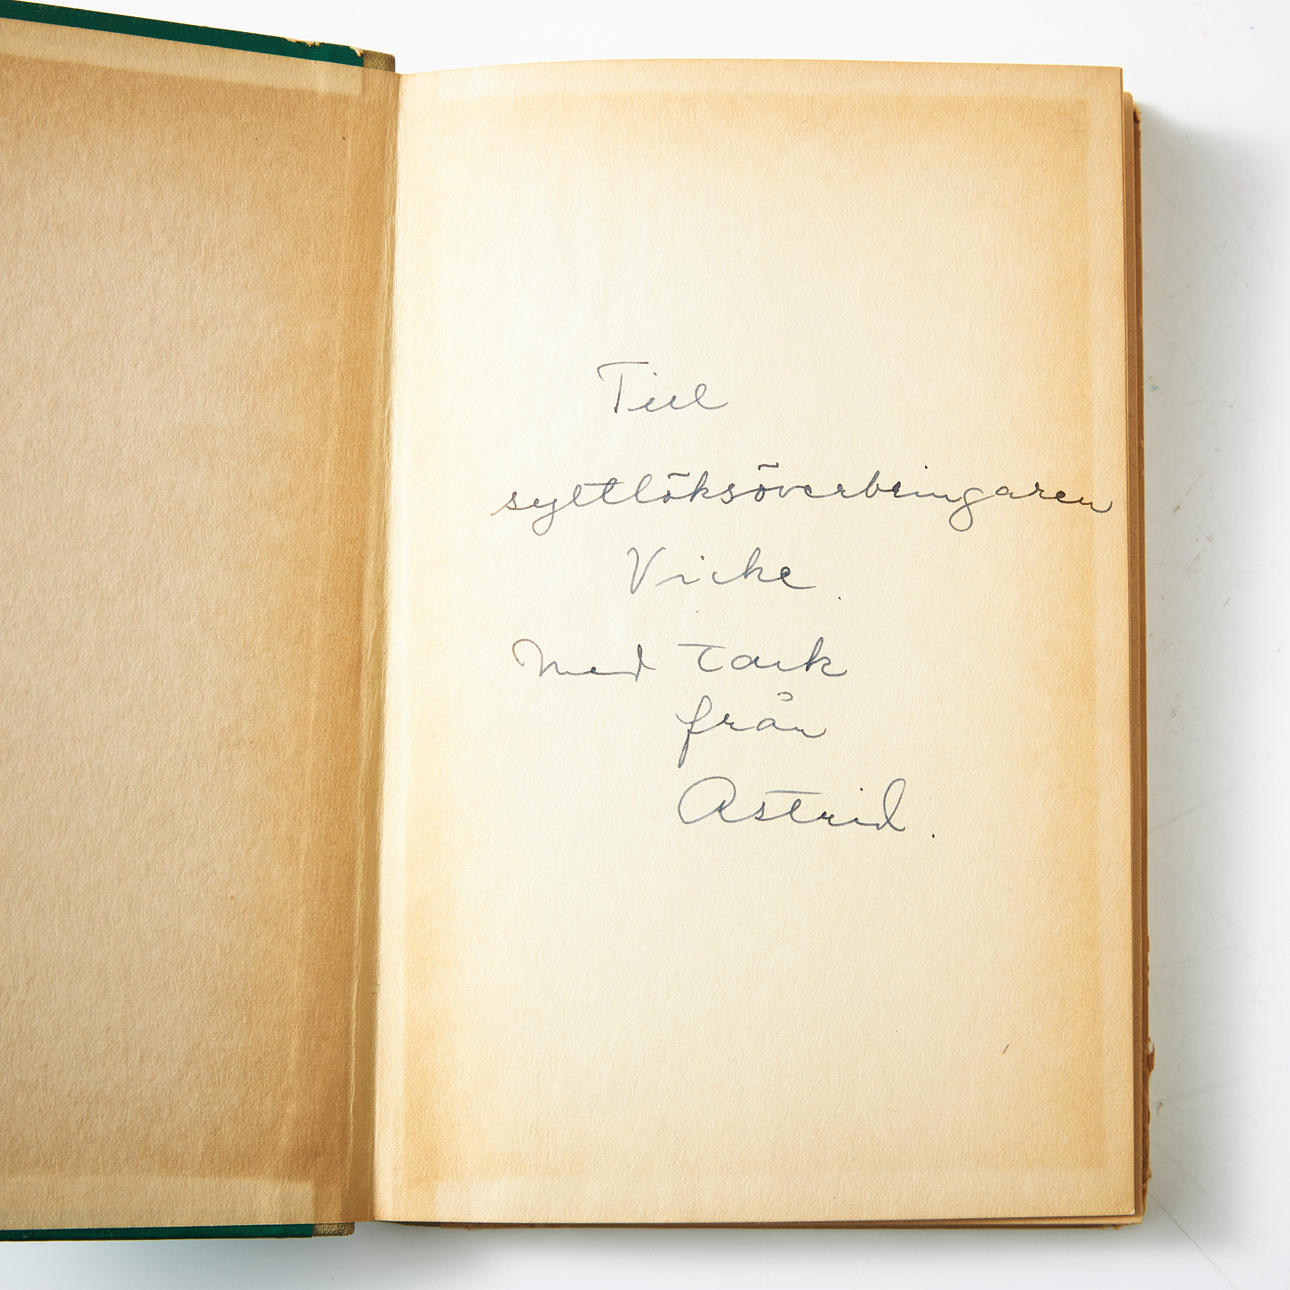 Till
syltlöksöverbringaren
Vicke.
Med tack
från
Astrid.